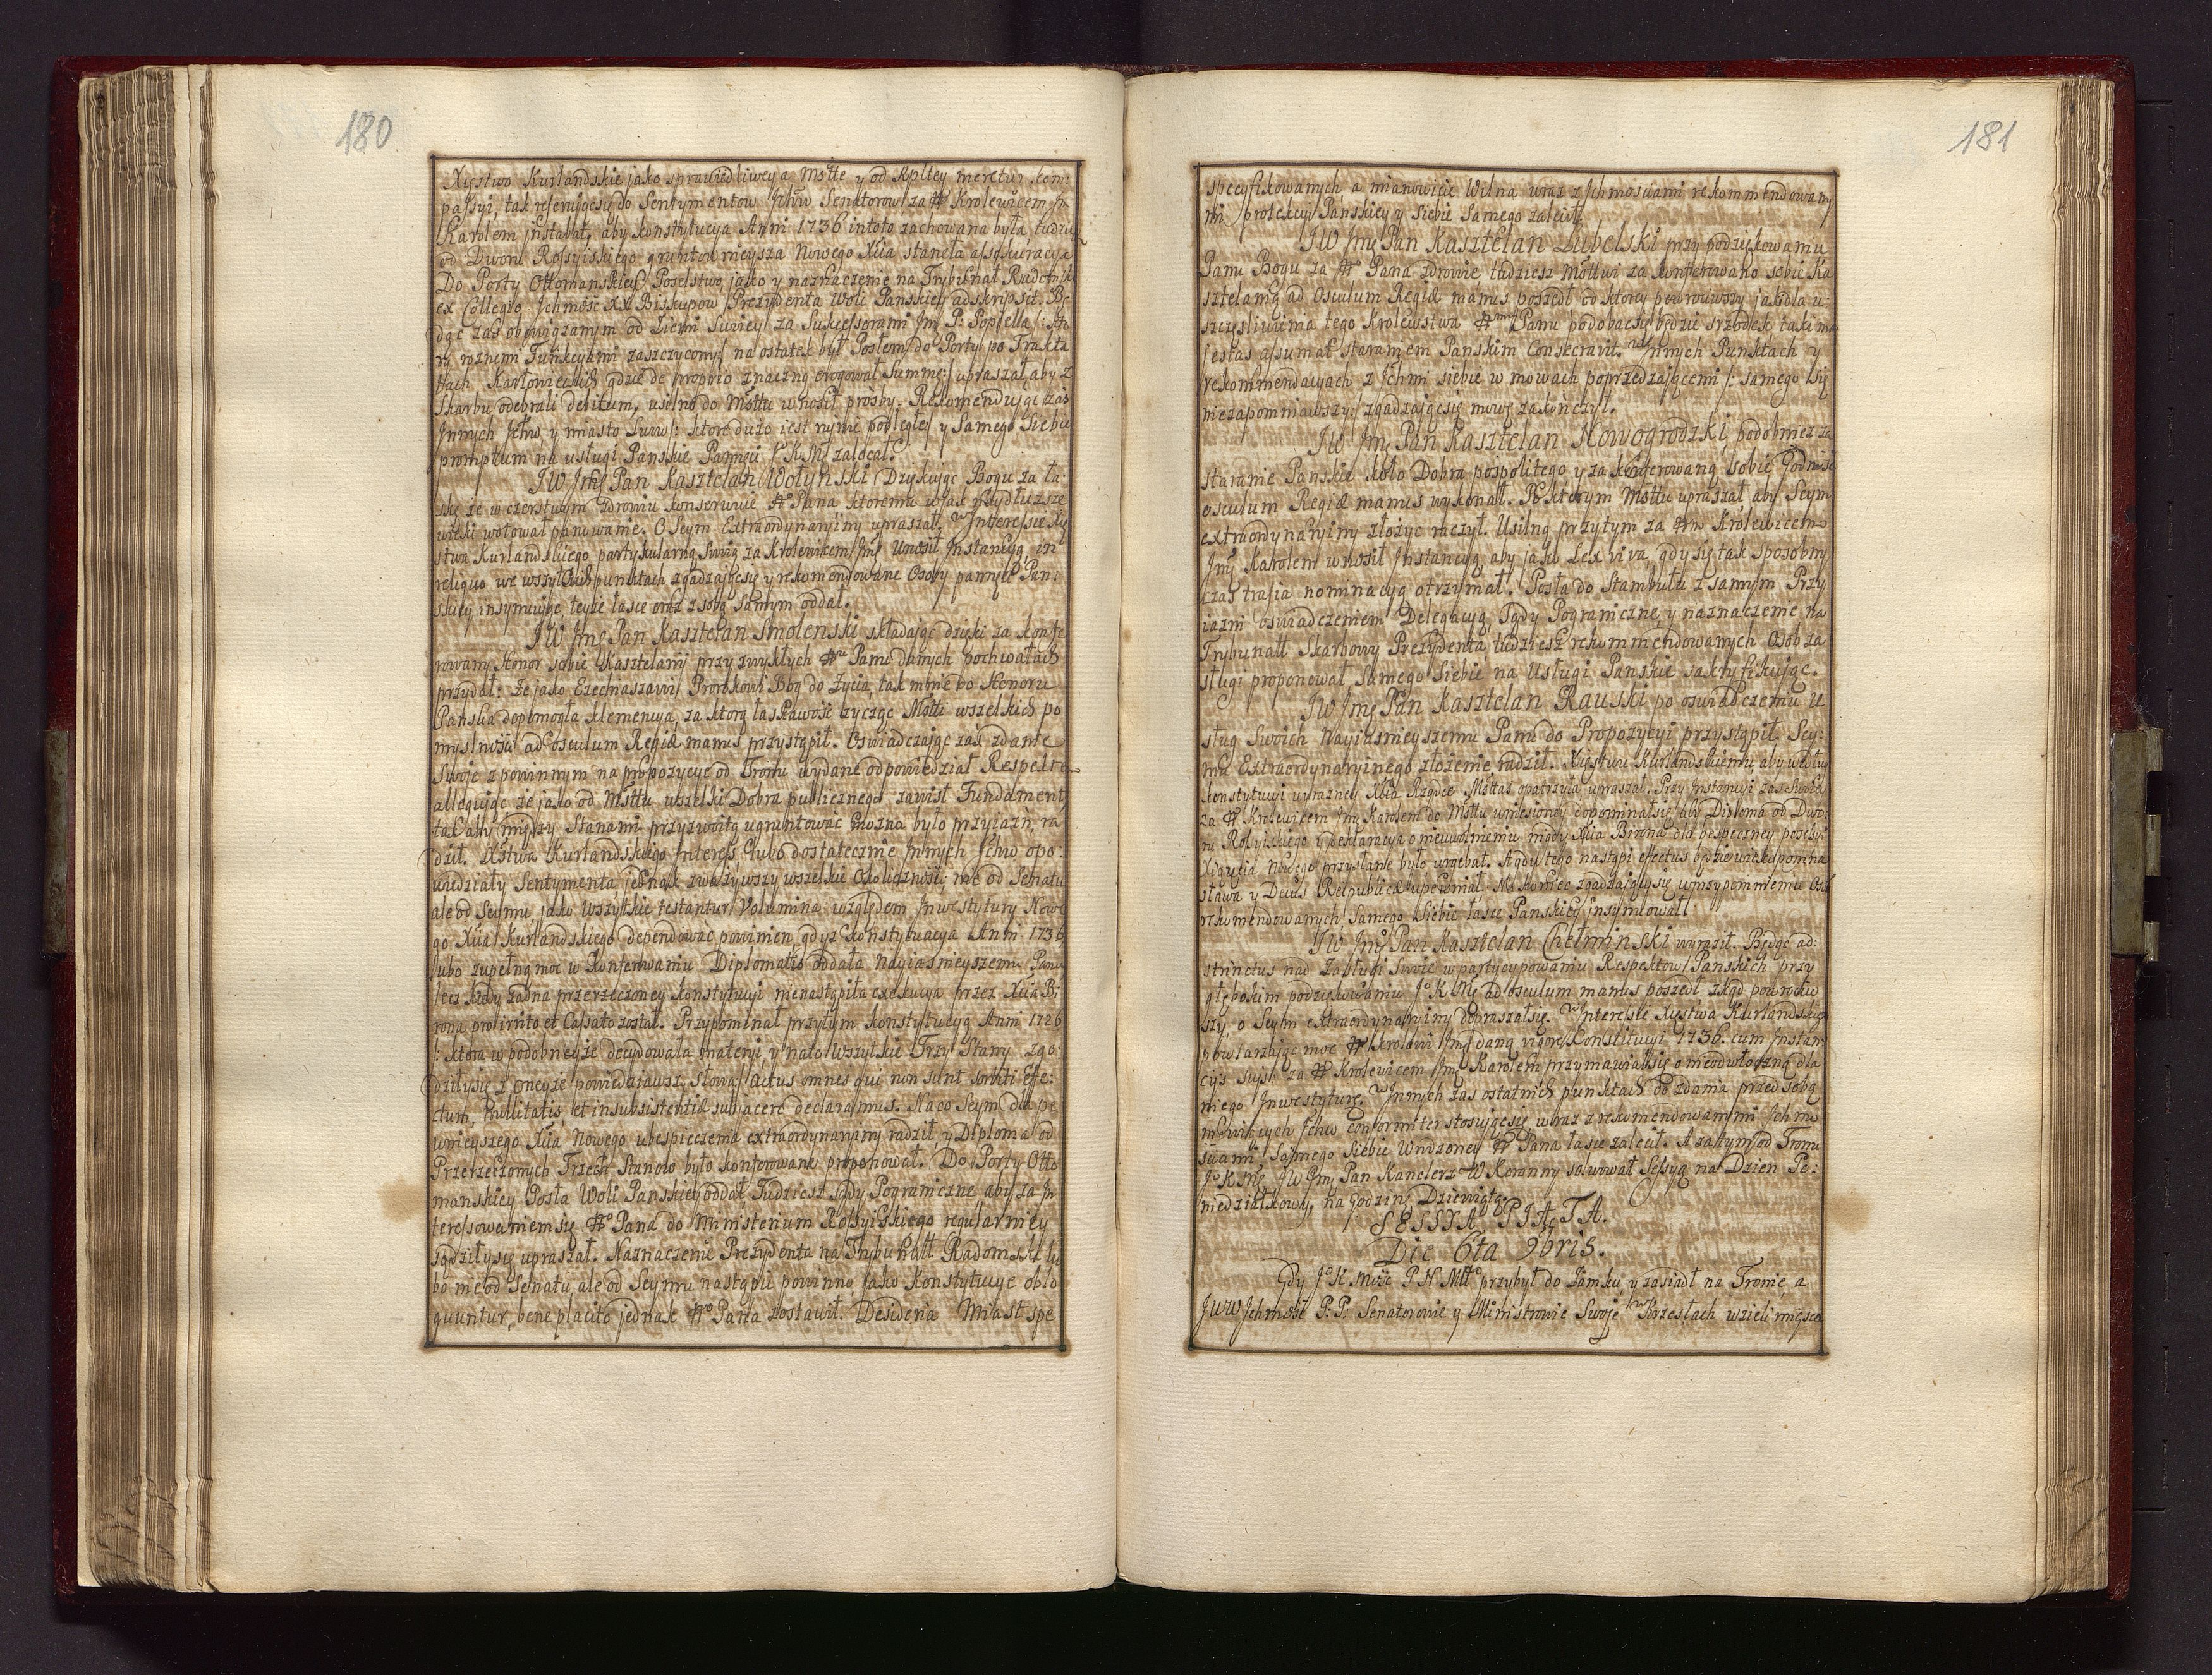 180
Xsystwo Kurlandskie jako sprawiedliwey a Mstte y od Rpltey meretur kom
passyi, tak referujęcsię do Sentymentow Jchw Senatorow za Krolewicem Jm
Karolem instabat, aby konstytucya Anni 1736 in toto zachowana była tudzie
od Dworu Rossyiskiego gruntownieysza Nowego Xcia staneła assekuracya
Do Porty Ottomanskiey Poselstwo, jako y naznaczenie na Trybunał Radomsk
ex Collegio Jchmośc XX Biskupow Prezydenta Woli Panskiey adskripsit. Bę
dąc zaś obowiązanym od Ziemi Swoiey za Sukcessorami Jm P: Popiella /: kt
ry roznemi Funkcyami zaszczycony, na ostatek był Posłem do Porty po Trakta
tach Karłowieckich gdzie de proprio znaczną erogował Summę:/ upraszał aby z
Skarbu odebrali debitum, usilno do Msttu wnosił prośby. Rekomendując zaś
Jnnych Jchw y miasto Suraz /: ktore duzo iest ruynie podległe y Samego Siebie
promptum na usługi Panskie Pamięci J K Mci zalocał.
JW Jmę Pan Kasztelan Wołynski Dziękując Bogu za ła:
skę że w czerstwym zdrowiu konserwuie Pana ktoremu wjak naydłuzsze
wieki wotował panowanie. O Seym Extraordynaryiny upraszał. W Jnteressie Xię
stwa Kurlandskiego partykularną Swoią za Krolewicem Jmę wnosił Jnstancyą, in
reliquo we wszytkich punktach zgadzającsię y rekomendowane Osoby pamięci Pan:
skiey insynuując teyże łasce oraz z sobą samym oddał.
JW Jmę Pan Kasztelan Smolenski składając dzięki za konfe
rowany Honor sobie Kasztelanij przy zwykłych Panu danych pochwałach
przydał: że jako Ezechiaszowi Prorokowi Bog do życia, tak mnie do Honoru
Panska dopomogła klemencya, za ktorą łaskawość zycząc Msttu wszelkich po
myslnosci ad osculum Regiæ manus przystąpił. Oswiadczając zaś zdanie
Swoje z powinnym na propozycye od Tronu wydane odpowiedział Respekte
allegując że jako od Msttu wszelki Dobra publicznego zawisł Fundament
tak aby między Stanami przyzwoitą ugruntować można było przyiazn, ra
dził. Xstwa Kurlandskiego Jnteress lubo dostatecznie Jnnych Jchw opo:
wiedziały Sentymenta jednak zwazywszy wszelkie okolicznosci nie od Senatu
ale od Seymu, jako wszytkie testantur Volumina względem Jnwestytury Nowe
go Xcia Kurlandskiego dependować powinien, gdyz Konstytucya Anni 1736
lubo zupełną moc w Konferowaniu Diplomatis oddała Nayiasnieyszemu Panu
lecz kiedy zadna przerzeczoney konstytucyi nienastąpiła exekucya przez Xcia Bi
rona, pro irrito et Cassato został. Przypominał przytym konstytucyą Anni 1726
/: ktora w podobneyże decydowała materyi, y nato wszytkie Trzy Stany zgo:
dziłysię z oneyże powiedziawszy słowa/ Actus omnes qui non sunt sortiti Effe:
ctum, Nullitatis, et insubsistentiæ subjacere declaramus. Naco Seym dla pe
wnieyszego Xcia Nowego ubespieczenia extraordynaryiny radził y Diploma od
Przerzeczonych Trzech Stanow było konferowane proponował. Do Porty Otto
manskiey Posła Woli Panskiey oddał, Tudziesz sądy Pograniczne aby za Jn
teressowaniem się Pana do Ministerium Rossyiskiego regularniey
sądziłysię upraszał. Naznaczenie Prezydenta na Trybunałł Radomski lu
bo nie od Senatu, ale od Seymu nastąpić powinno, jako Konstytucye oblo
quuntur, bene placito jednak Pana zostawił. Desideria Miast spe
181
specyfikowanych a mianowicie Wilna wraz z Jchmosciami rekommendowany
mi protekcyi Panskiey y Siebie Samego zalecił.
JW Jmę Pan Kasztelan Lubelski przy podziękowaniu
Panu Bogu za Pana zdrowie tudziesz Msttwi za konferowano sobie Ka
sztelanią ad Osculum Regiæ manus poszedł od ktorey powrociwszy jakodla u:
szczęsliwienia tego Krolewstwa Panu podobacsię będzie srzodek taki m
jestas assumat staraniem Panskim Consecravit. W Jnnych Punktach y
rekommendacyach z Jchmi siebie w mowach poprzedzającemi /: samego się
niezapomniawszy:/ zgadzającsię mowę zakończył.
JW Jmę Pan Kasztelan Nowogrodzki podobniez za
staranie Panskie koło Dobra pospolitego y za konferowaną sobie Godność
osculum Regiæ manus wykonał. Po ktorym Msttu upraszał aby Seym
extraordynaryiny złożyc raczył. Usilną przytym za Krolewicem
Jmę Karolem wnosił Jnstancyą, aby jako Lex viva, gdy się tak sposobny
czas trafia nominacyą otrzymał. Posła do Stambułu z samym Przy
iazni oswiadczeniem Delegacyą, Sądy Pograniczne, y naznaczenie na
Trybunałł Skarbowy Prezydenta, tudziesz rekommendowanych Osob za
sługi proponował, Samego Siebie na Usługi Panskie sakryfikując.
JW Jmę Pan Kasztelan Rauski po oswiadczeniu u
sług Swoich Nayiasnieyszemu Panu do Propozycyi przystąpił. Sey:
mu Extraordynaryinego złożenie radził. Xięstwu Kurlandskiemu, aby według
konstytucyi wyrazney Xcia Rządce Msttas opatrzyła upraszał. Przy Jnstancyi zaś Swoiey
za Krolewicem Jmę Karolem do Msttu wniesioney dopominałsię, aby Diploma od Dwo
ru Rossyiskiego y deklaracya o nieuwolnieniu nigdy Xcia Birona, dla bespeczney possessyi
Xięcia Nowego przysłane było urgebat. A gdy tego nastąpi effectus będzie wiekopomna
sława y Decus Reipublicæ upewniał. Na koniec zgadzającysię w przypomnieniu Osob
rekomendowanych, Samego Siebie łasce Panskiey insynuował
JW Jmę Pan Kasztelan Chełminski wyraził. Będąc ad:
strinctus nad Zasługi Swoie w partycypowaniu Respektow Panskich przy
głębokim podziękowaniu J K Mci ad osculum manus poszedł zkąd powrociw
szy, o Seym extraordynaryiny dopraszałsię. W Jnteresie Xięstwa Kurlandskiego
powtarzając moc Krolowi Jmę daną vigore Konstitucyi 1736. cum Jnstan
cyis suis za Krolewicem Jmę Karolem przymawiałsię o nieodwłoczną dla
niego Jnwestyturę. W Jnnych zaś ostatnich punktach do zdania przed sobą
mowiących Jchw conformiter stosującsię wraz z rekomendowanimi Jchmo
sciami Samego Siebie Wrodzoney Pana łasce zalecił. A zatym od Tronu
J K Mci JW Jmę Pan Kanclerz W Koronny solwował Sessyą na Dzien Po:
niedziałkowy, na godzinę Dziewiątą.
SESSYA PIĄTA.
Die 6ta 9bris.
Gdy J K Mośc P N Mtt przybył do Zamku, y zasiadł na Tronie, a
JWW Jchmośc P: P: Senatorowie y Ministrowie Swoje w Krzesłach wzieli miejsce